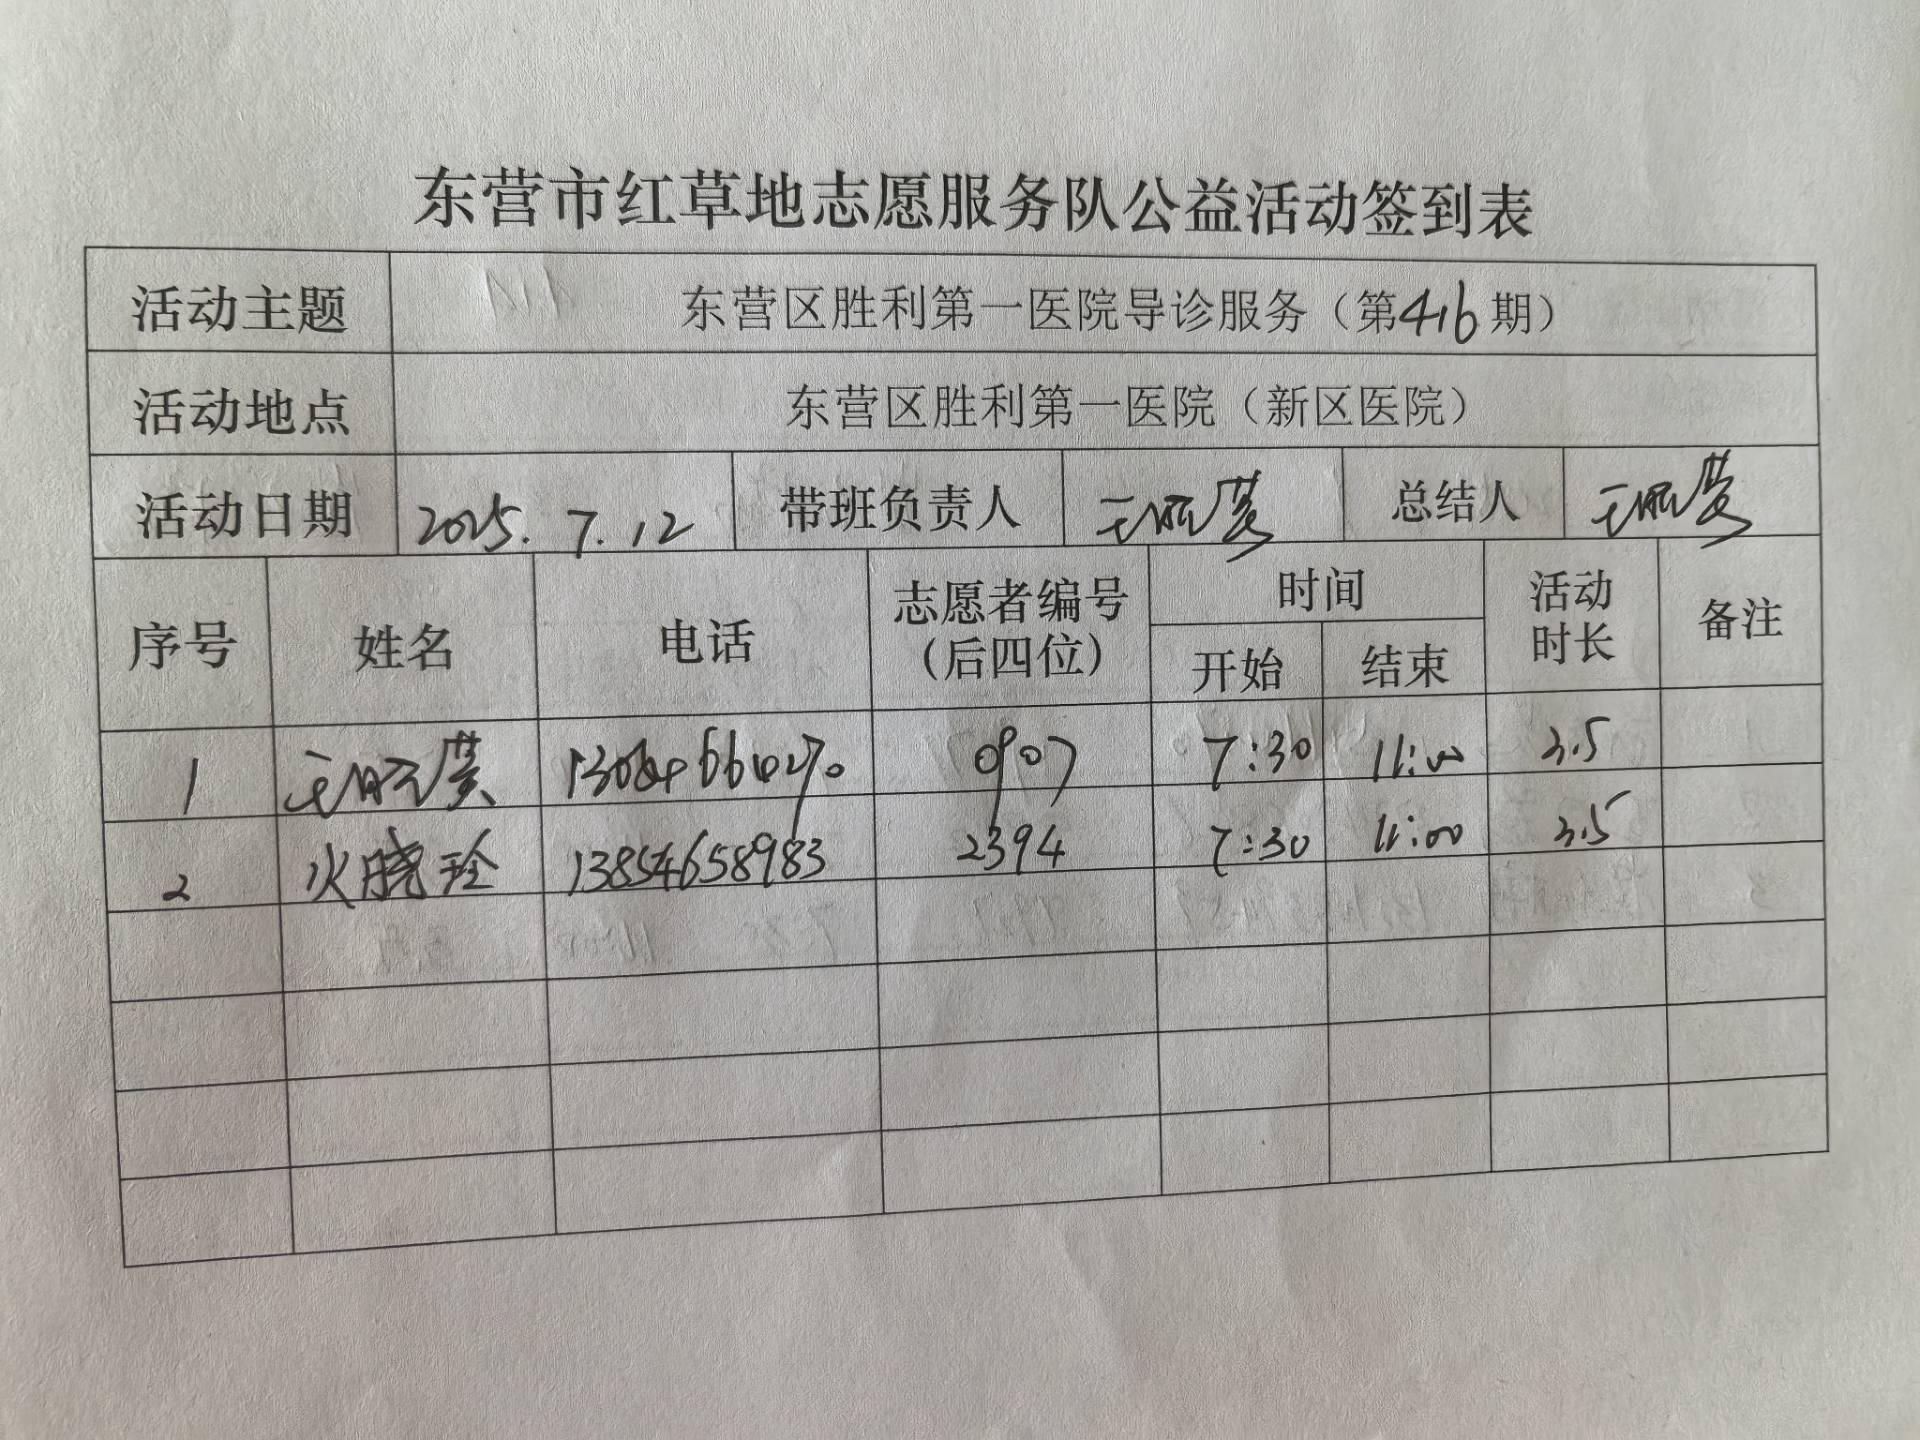 东营市红草地志愿服务队公益活动签到表
活动主题 东营区胜利第一医院导诊服务（第416期）
活动地点 东营区胜利第一医院（新区医院）
活动日期 2025.7.12 带班负责人 总结人
序号 姓名 电话 志愿者编号（后四位） 时间 开始 结束 活动时长 备注
1 0907 7:30 11:00 3.5
2 火晓玲 13854658983 2394 7:30 11:00 3.5